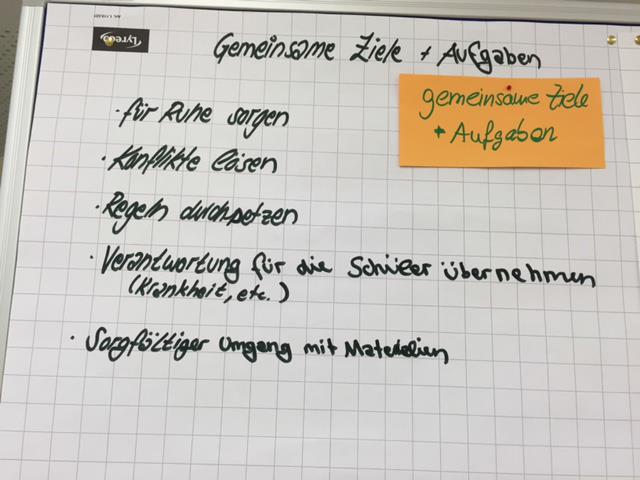 Lyreco
Gemeinsame Ziele + Aufgaben
gemeinsame Ziele
+ Aufgaben
· für Ruhe sorgen
· Konflikte lösen
· Regeln durchsetzen
· Verantwortung für die Schüler übernehmen
(Krankheit, etc.)
· Sorgfältiger Umgang mit Materialien